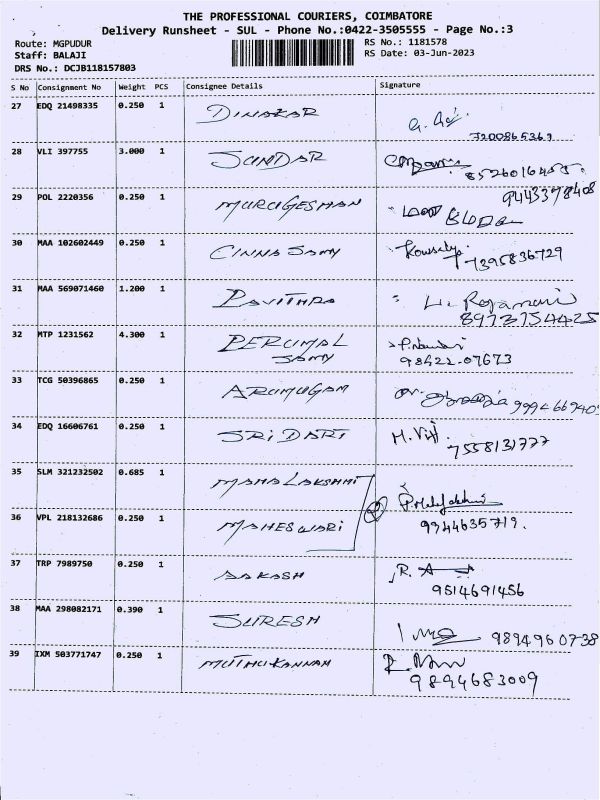 THE PROFESSIONAL COURIERS, COIMBATORE
Delivery Runsheet - SUL - Phone No.:0422-3505555 - Page No.:3
Route: MGPUDUR RS No.: 1181578
Staff: BALAJI RS Date: 03-Jun-2023
DRS No.: DCJB118157803
S No Consignment No Weight PCS Consignee Details Signature
27 EDQ 21498335 0.250 1 DINAKAR
7200865369
28 VLI 397755 3.000 1 SUNDAR
8526016455.
29 POL 2220356 0.250 1 MURUGESHAN 9443378408
30 MAA 102602449 0.250 1 CINNA SAMY Kowsalya 7395836729
31 MAA 569071460 1.200 1 PAVITHRA
8973754425
32 MTP 1231562 4.300 1 PERUMAL
SAMY 98422-07673
33 TCG 50396865 0.250 1 ARUMUGAM
34 EDQ 16606761 0.250 1 SRI DARI 7558131777
35 SLM 321232502 0.685 1 MAHA LAKSHMI
36 VPL 218132686 0.250 1 MAHESWARI 9944635719.
37 TRP 7989750 0.250 1 AAKASH R.
9514691456
38 MAA 298082171 0.390 1 SURESH
9894960738
39 IXM 503771747 0.250 1 MUTHU KANNAN
9894683009